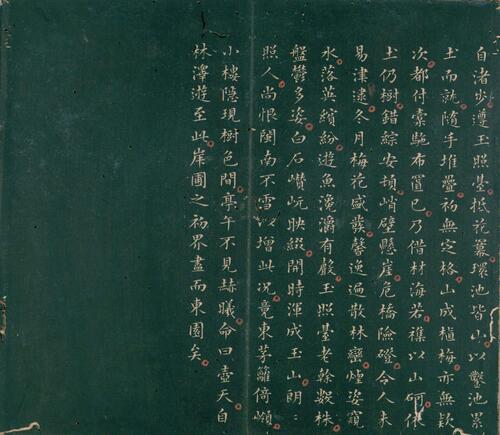 自渚步遵玉照臺抵花幕環池皆山以鑿池累
土而就隨手堆疊初無定格山成植梅亦無欵
次都付橐駞布置已乃借材海若襍以山砢俵
土仍樹錯綜安頓峭壁懸崖危橋險磴令人未
易津逮冬月梅花盛發馨逸遍散林巒煙姿窺
水落英繽紛遊魚瀺灂有㲉玉照臺老榦數株
盤鬱多姿白石巑岏映綴開時渾成玉山朗〻
照人尚恨閩南不雪以增此況竟東茅籬倚巔
小樓隱現樹色間亭午不見赫曦命曰壺天自
林澤遊至此岸圃之初界盡而東園矣